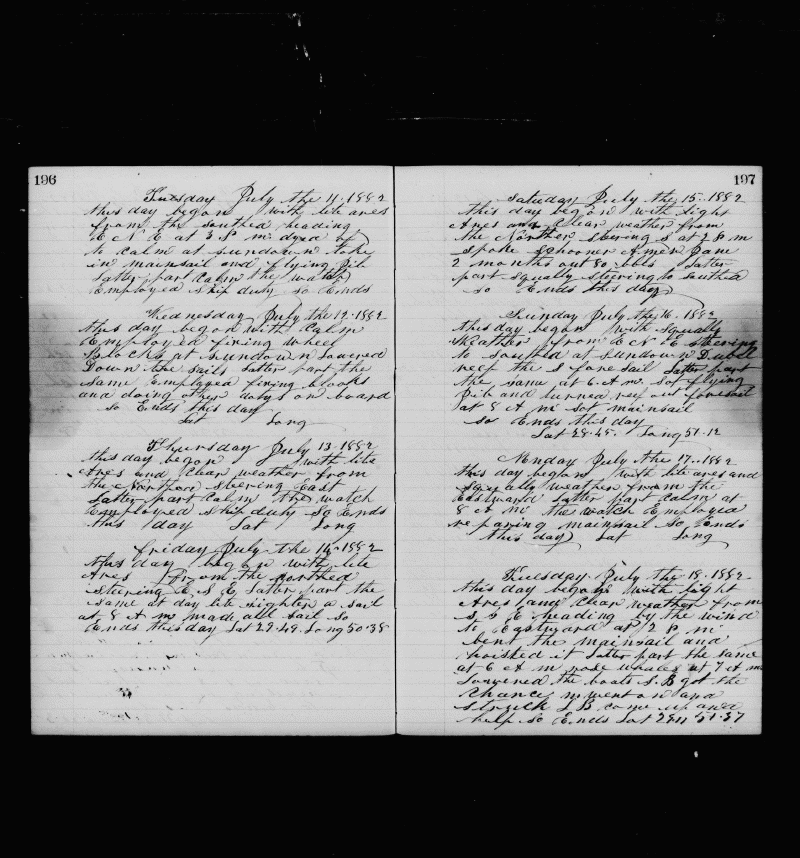 196
Tuesday July the 11-1882
this day began with lite ares
from the southed heading
E N E at 3 P m dyed of
to Calm at sundown toke
in mainsail and flying jib
Latter part Calm the watch
Employed ship duty so Ends
Wednesday July the 12-1882
this day began with Calm
Employed fixing wheel
Blocks at sundown lowered
Down the sails Latter part the
same Employed fixing blocks
and doing other dutys on board
so Ends this day
Lat Long
Thursday July 13-1882
this day began with lite
Ares and Clear weather from
the Northed steering East
Latter part Calm the watch
Employed ship duty so Ends
this day Lat Long
Friday July the 14-1882
this day began with lite
Ares from the northed
steering E S E Latter part the
same at day lite sighted a sail
at 8 A m made all sail so
Ends this day Lat 29-49 Long 50-38
197
Saturday July the 15-1882
this day began with light
Ares and Clear weather from
the Norther steering S at 2 P m
spoke schooner
2 months out 80 bbls Latter
part squaly steering to southed
so Ends this day
Sunday July the 16-1882
this day began with squally
Weather from E N E steering
to southed at sundown Dubell
reef the foresail Latter part
the same at 6 A m sot flying
jib and turned reef out foresail
at 8 A m sot mainsail
so Ends this day
Lat 28-45 Long 51-12
Monday July the 17-1882
this day began with lite ares and
squaly weather from the
Eastward Latter part Calm at
8 A m the watch Employed
reparing mainsail so Ends
this day Lat Long
Tuesday July the 18-1882
this day began with light
Ares and Clear weather from
S S E heading by the wind
to Eastward at 2 P m
bent the mainsail and
hoisked it Latter part the same
at 6 A m rose whales at 7 A m
Lowered the boats S B got the
Chance went on and
struck L B come up and
help so Ends Lat 28 11 51-37